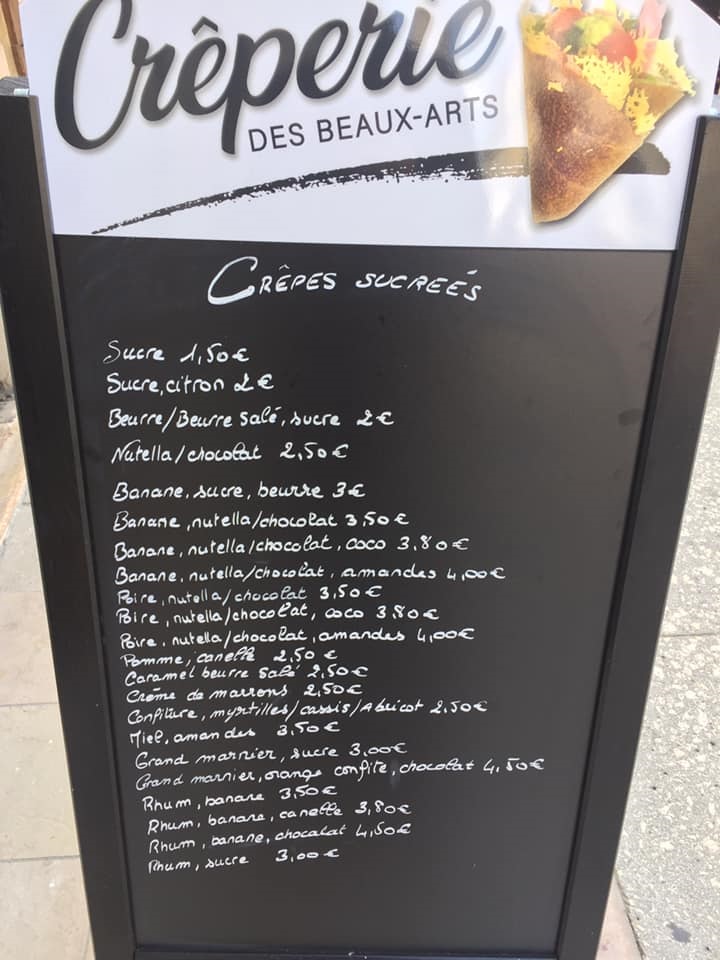 Crêperie
DES BEAUX-ARTS
CRÊPES SUCREÉS
Sucre 1,50€
Sucre, citron 2€
Beurre/Beurre salé, sucre 2€
Nutella/chocolat 2,50€
Banane, sucre, beurre 3€
Banane, nutella/chocolat 3,50€
Banane, nutella/chocolat, coco 3,80€
Banane, nutella/chocolat, amandes 4,00€
Poire, nutella/chocolat 3,50€
Poire, nutella/chocolat, coco 3,80€
Poire, nutella/chocolat, amandes 4,00€
Pomme, canelle 2,50€
Caramel beurre salé 2,50€
Crème de marrons 2,50€
Confiture, myrtilles/cassis/Abricot 2,50€
Miel, amandes 3,50€
Grand marnier, sucre 3,00€
Grand marnier, orange confite, chocolat 4,50€
Rhum, banane 3,50€
Rhum, banane, canelle 3,80€
Rhum, banane, chocolat 4,50€
Rhum, sucre 3,00€